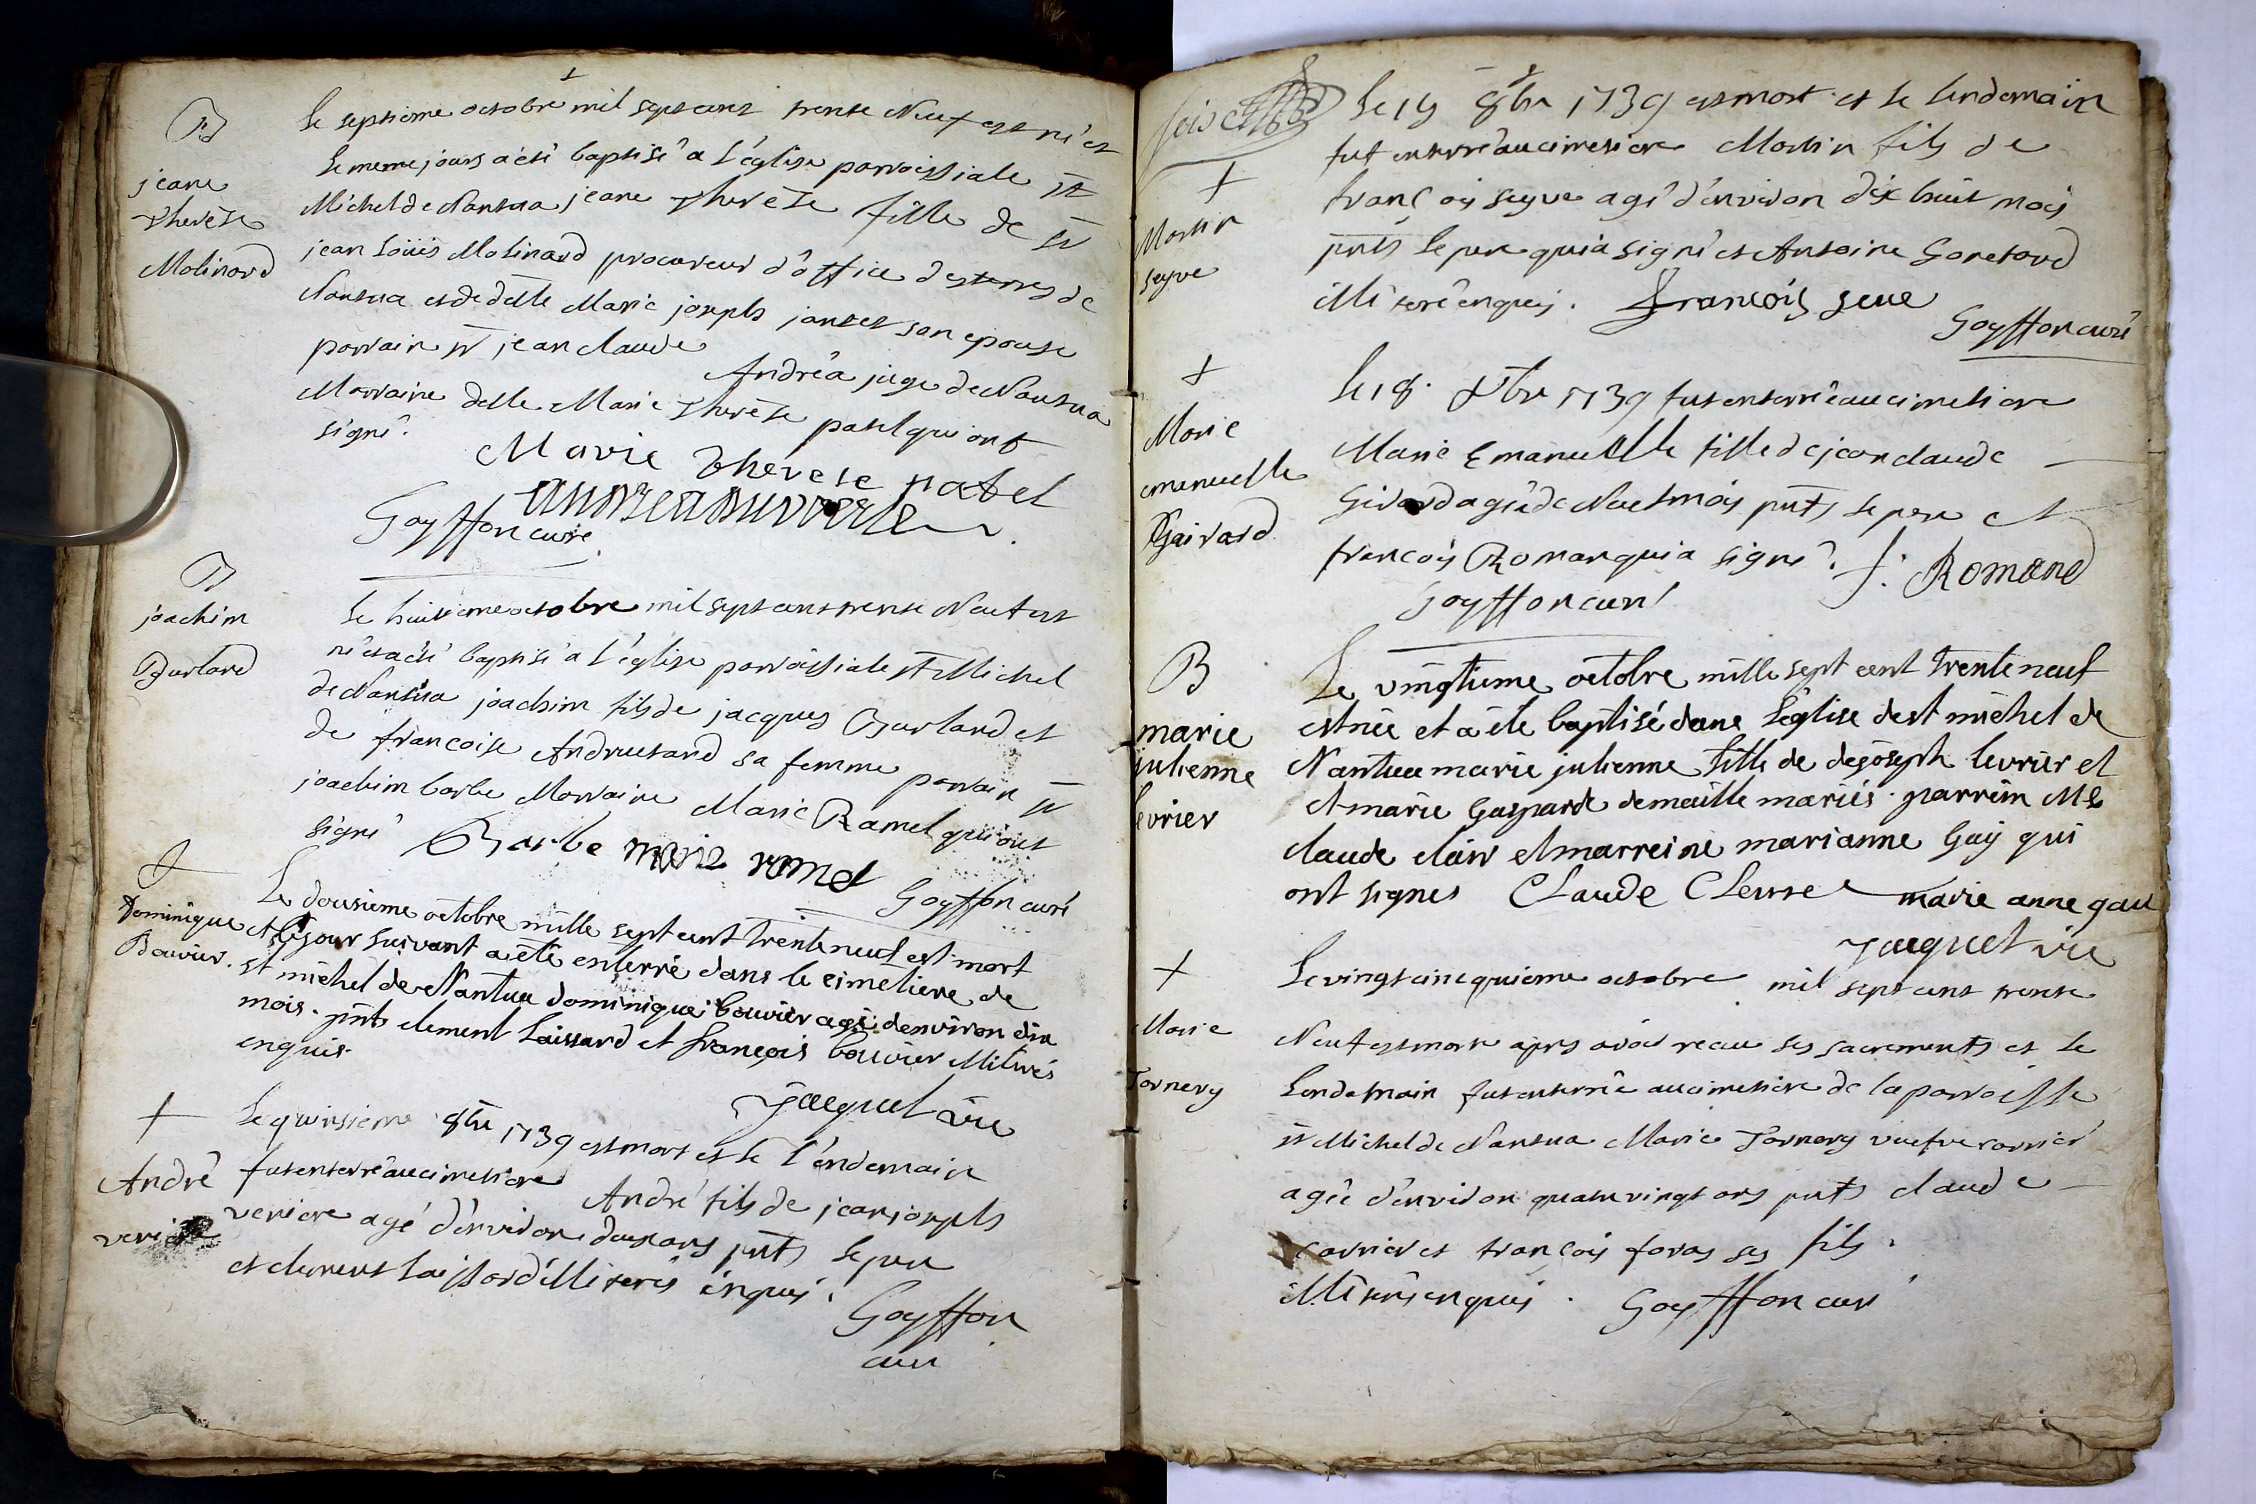 B
jeane
Therèse
Molinard
Le septieme octobre mil sept cens trente Neuf est né et
le meme jours a été baptisé a l'église parroissiale st
Michel de Nantua jeane Therèse fille de sr
jean Loüis Molinard procureur d'office des terres de
Nantua et de delle Marie joseph jantet son epouse
parrain sr jean claude Andréa juge de Nantua
Marraine delle Marie Therèse patel qui ont
signé.
Marie Therese patel
Goyffon curé
B
joachim
Burland
Le huitieme octobre mil sept cens trente Neuf est
né et a été baptisé a l'église parroissiale st Michel
de Nantua joachim fils de jacques Burland et
de francoise Andruetand sa femme parrain sr
joachim barbe Marraine Marie Ramel qui ont
signé Barbe marie ramel
Goyffon curé
+
Dominique
Bouvier.
Le dousieme octobre mille sept cent trente neuf est mort
et le jour suivant a été enterré dans le cimetiere de
st michel de Nantua dominique bouvier agé denviron dix
mois. pnts clement Laissard et françois bouvier illitirés
enquis.
Jacquet vic
+
André
veniere
Le quinsieme 8bre 1739 est mort et le l'endemain
fut enterré au cimetiere André fils de jean joseph
veniere agé d'environ deux ans pnts le pere
et clement Laissard illiterés enquis.
Goyffon
curé
+
Martin
seyve
Le 19 8bre 1739 est mort et le lendemain
fut enterré au cimetiere Martin fils de
franç ois seyve agé d'environ dix huit mois
pnts le pere qui a signé et Antoine Goretard
illiteré enquis. François seve
Goyffon curé
+
Marie
emanuelle
Gairard
le 18. 8bre 1739 fut enterrée au cimetiere
Marie Emanuelle fille de jean claude
Girard agée de Neuf mois pnts le pere et
francois Roman qui a signé. f. Romand
Goyffon curé
B
marie
julienne
levrier
Le vingtieme octobre mille sept cent trente neuf
est née et a été baptisé dans l'église de st michel de
Nantua marie julienne fille de de joseph levrier et
et marie Gaspard demaille mariés. parrein Me
claude clair et marreine marianne Gay qui
ont signés Claude Clerre marie anne gau
Jacquet vic
+
Marie
Tornery
Le vingt cinequieme octobre mil sept cens trente
Neuf est morte apres avoir receu ses sacrements et le
Lendemain fut enterrée au cimetiere de la parroisse
st Michel de Nantua Marie Tornery vuefve carrier
agée d'environ quatre vingt ans pnts claude
carrier et françois foras ses fils.
illiterés enquis. Goyffon curé